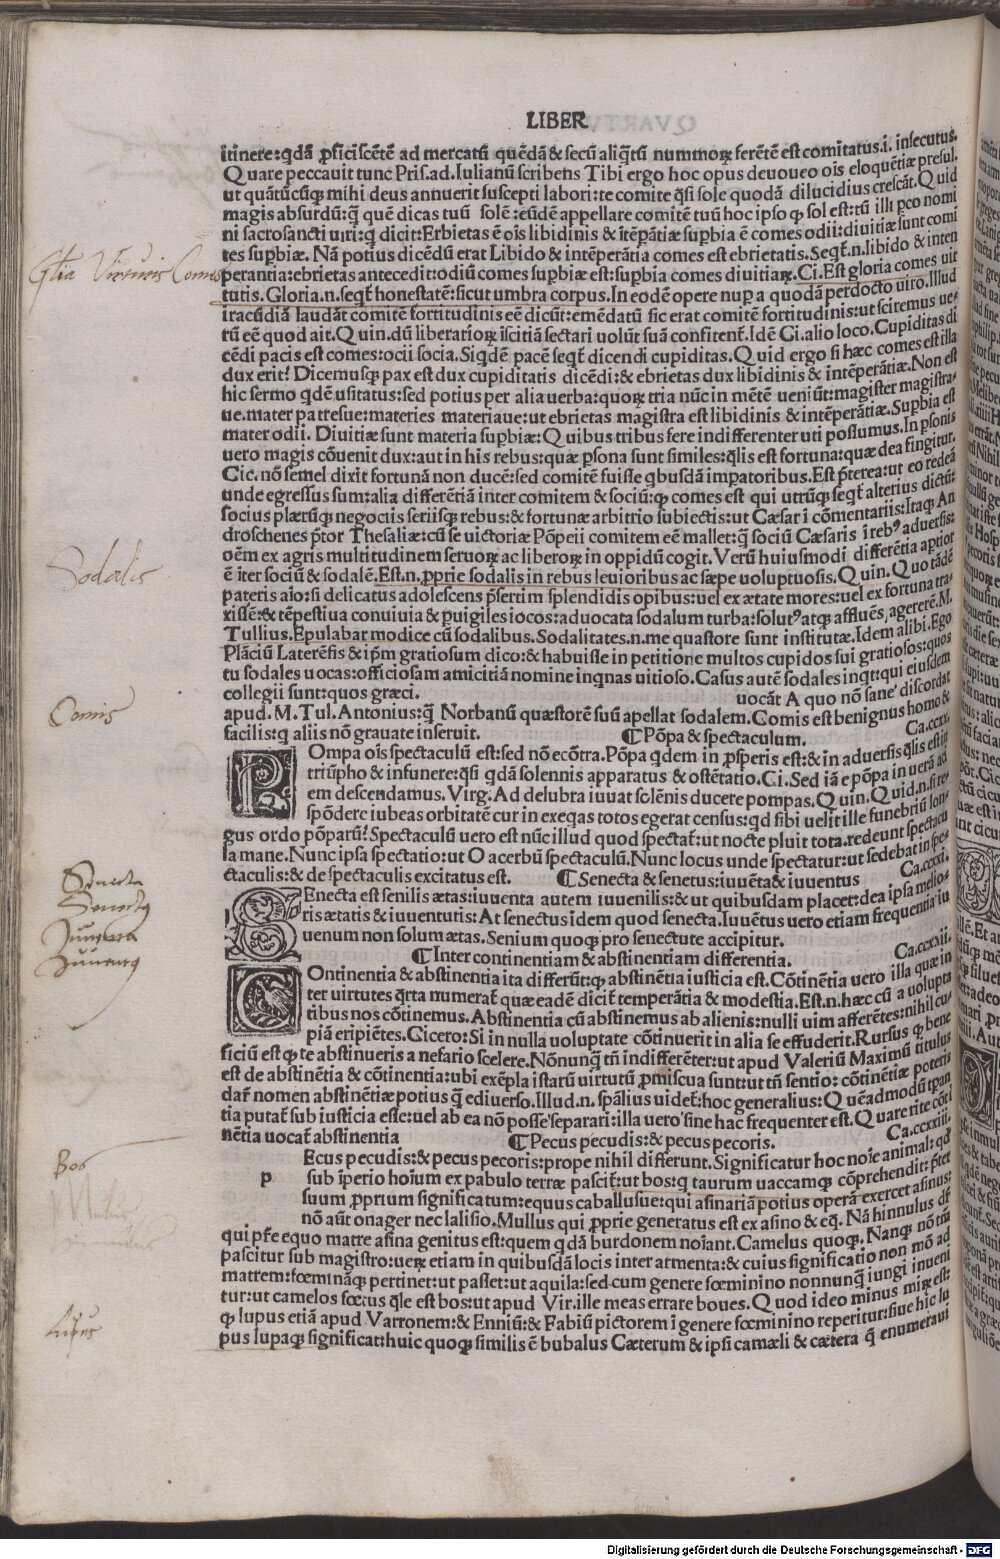 LIBER
itinere:qdā ꝓficiscētē ad mercatū quēdā & secū aliq̄tū nummoꝝ ferētē est comitatus.i. insecutus.
Quare peccauit tunc Pris.ad.Iulianū scribens Tibi ergo hoc opus deuoueo ois eloquētiæ præsul.
ut quātūcūqꝫ mihi deus annuerit suscepti labori:te comite q̄si sole quodā dilucidius crescāt.Quid
magis absurdū:q̄ quē dicas tuū solē:eūdē appellare comitē tuū hoc ipso ꝙ sol est:tū illi pco nomi
ni sacrosancti uiri:q̄ dicit:Erbietas ē oīs libidinis & ītēpātiæ suꝑbia ē comes odii:diuitiæ sunt comi
tes suꝑbiæ. Nā potius dicēdū erat Libido & intēperātia comes est ebrietatis.Seqt̄.n.libido & inten
perantia:ebrietas antecedit:odiū comes suꝑbiæ est:suꝑbia comes diuitiaꝝ.Ci.Est gloria comes uir
Glīa Virtutis Comes
tutis.Gloria.n.seqt̄ honestatē:sicut umbra corpus.In eodē opere nuper a quodā perdocto uiro.Illud
iracūdiā laudāt comitē fortitudinis eē dicūt:emēdatū sic erat comitē fortitudinis:ut sciremus ue-
rū eē quod ait.Quin.dū liberarioꝝ iscitiā sectari uolūt suā confitent̄.Idē Ci.alio loco.Cupiditas di
cēdi pacis est comes:ocii socia.Siqdē pacē seqt̄ dicendi cupiditas.Quid ergo si hæc comes est illa
dux erit? Dicemusqꝫ pax est dux cupiditatis dicēdi:& ebrietas dux libidinis & intēperātiæ.Non est
hic sermo qdē usitatus:sed potius per alia uerba:quoꝝ tria nūc in mētē ueniūt:magister magistra-
ue.mater patresue:materies materiaue:ut ebrietas magistra est libidinis & intēperātiæ.Suꝑbia est
mater odii. Diuitiæ sunt materia suꝑbiæ:Quibus tribus fere indifferenter uti possumus.In ꝑsonis
uero magis cōuenit dux:aut in his rebus:quæ ꝑsona sunt similes:q̄lis est fortuna:quæ dea fingitur.
Cic.nō semel dixit fortunā non ducē:sed comitē fuisse qbusdā imꝑatoribus.Est p̄terea:ut eo redeā
unde egressus sum:alia differētiā inter comitem & sociū:ꝙ comes est qui utrūqꝫ seqt̄ alterius dictū:
socius plærūqꝫ negociis seriisqꝫ rebus:& fortunæ arbitrio subiectis:ut Cæsar ī cōmentariis:Itaqꝫ An
droschenes p̄tor Thesaliæ:cū se uictoriæ Pōpeii comitem eē mallet:q̄ sociū Cæsaris ī rebꝰ aduersis:
oēm ex agris multitudinem seruoꝝ ac liberoꝝ in oppidū cogit. Verū huiusmodi differētia aptior
Sodalis
ē īter sociū & sodalē.Est.n.ꝓprie sodalis in rebus leuioribus ac sæpe uoluptuosis.Quin.Quo tādē
pateris aio:si delicatus adolescens p̄sertim splendidis opibus:uel ex ætate mores:uel ex fortuna tra-
xissē:& tēpestiua conuiuia & ꝑuigiles iocos:aduocata sodalum turba:solutꝰ atqꝫ afflués,agererē.M.
Tullius.Epulabar modice cū sodalibus.Sodalitates.n.me quæstore sunt institutæ.Idem alibi.Ego
Plāciū Laterēsis & ip̄m gratiosum dico:& habuisse in petitione multos cupidos sui gratiosos:quos
tu sodales uocas:officiosam amicitiā nomine inqnas uitioso.Casus autē sodales inqt:qui eiusdem
collegii sunt:quos græci. uocāt A quo nō sane discordat
Comis
apud.M.Tul.Antonius:q̄ Norbanū quæstorē suū apellat sodalem.Comis est benignus homo &
facilis:q aliis nō grauate inseruit. ¶Pōpa & spectaculum. Ca.cxxi.
POmpa oīs spectaculū est:sed nō ecōtra.Pōpa qdem in ꝓsperis est:& in aduersis q̄lis est in
triūpho & in funere:q̄si qdā solennis apparatus & ostētatio.Ci.Sed iā e pōpa in uerā aci
em descendamus.Virg.Ad delubra iuuat solēnis ducere pompas.Quin.Quid.n.si res
spōdere iubeas orbitatē cur in exeqas totos egerat census:qd sibi uelit ille funebriū lon-
gus ordo pōparū? Spectaculū uero est nūc illud quod spectat̄:ut nocte pluit tota.redeunt spectacu
la mane.Nunc ipsa spectatio:ut O acerbū spectaculū.Nunc locus unde spectatur:ut sedebat in spe-
Senecta
ctaculis:& de spectaculis excitatus est. ¶Senecta & senetus:iuuēta & iuuentus Ca.cxxi.
Senectꝰ
SEnecta est senilis ætas:iuuenta autem iuuenilis:& ut quibusdam placet:dea ipsa melio-
ris ætatis & iuuentutis:At senectus idem quod senecta.Iuuētus uero etiam frequentia iu
Juuenta
uenum non solum ætas.Senium quoqꝫ pro senectute accipitur.
Juuentꝰ
¶Inter continentiam & abstinentiam differentia. Ca.cxxii.
COntinentia & abstinentia ita differūt:ꝙ abstinētia iusticia est.Cōtinētia uero illa quæ in
ter uirtutes q̄rta numerat̄ quæ eadē dicit̄ temperātia & modestia.Est.n.hæc cū a uolupta
tibus nos cōtinemus.Abstinentia cū abstinemus ab alienis:nulli uim afferētes:nihil cu
piā eripiētes.Cicero:Si in nulla uoluptate cōtinuerit in alia se effuderit.Rursus ꝙ bene
ficiū est ꝙ te abstinueris a nefario scelere.Nōnunq̄ tn̄ indifferēter:ut apud Valeriū Maximū titulus
est de abstinētia & cōtinentia:ubi exēpla istarū uirtutū ꝓmiscua sunt:ut tn̄ sentio: cōtinētiæ poterit
dari nomen abstinētiæ potius q̄ ediuerso.Illud.n.sp̄alius uidet̄:hoc generalius:Quēadmodū tꝑan
tia putat̄ sub iusticia esse:uel ab ea nō posse separari:illa uero sine hac frequenter est.Quare rite cōti
nētia uocat̄ abstinentia ¶Pecus pecudis:& pecus pecoris. Ca.cxxiii.
Bos
p Ecus pecudis:& pecus pecoris:prope nihil differunt.Significatur hoc noīe animal:qd
sub īperio hoīum ex pabulo terræ pascit̄:ut bos:q taurum uaccamqꝫ cōprehendit:p̄ter
Mulus
suum ꝓprium significatum:equus caballusue:qui asinariā potius operā exercet asinus:
nō aūt onager nec lalisio.Mullus qui ꝓprie generatus est ex asino & eq̄. Nā hinnulus df̄
Hinnulus
qui pr̄e equo matre asina genitus est:quem qdā burdonem noīant.Camelus quoqꝫ.Nanqꝫ nō tm̄
pascitur sub magistro:ueꝝ etiam in quibusdā locis inter armenta:& cuius significatio non mō ad
matrem:fœmināqꝫ pertinet:ut passet:ut aquila:sed cum genere fœminino nonnunq̄ iungi inueni
tur:ut camelos fœtus q̄le est bos:ut apud Vir.ille meas errare boues.Quod ideo minus miꝝ est:
Lupus
ꝙ lupus etiā apud Varronem:& Enniū:& Fabiū pictorem ī genere fœminino reperitur:siue hic lu
pus lupaqꝫ significat:huic quoqꝫ similis ē bubalus Cæterum & ipsi camæli & cætera q̄ enumeraui
Digitalisierung gefördert durch die Deutsche Forschungsgemeinschaft - DFG